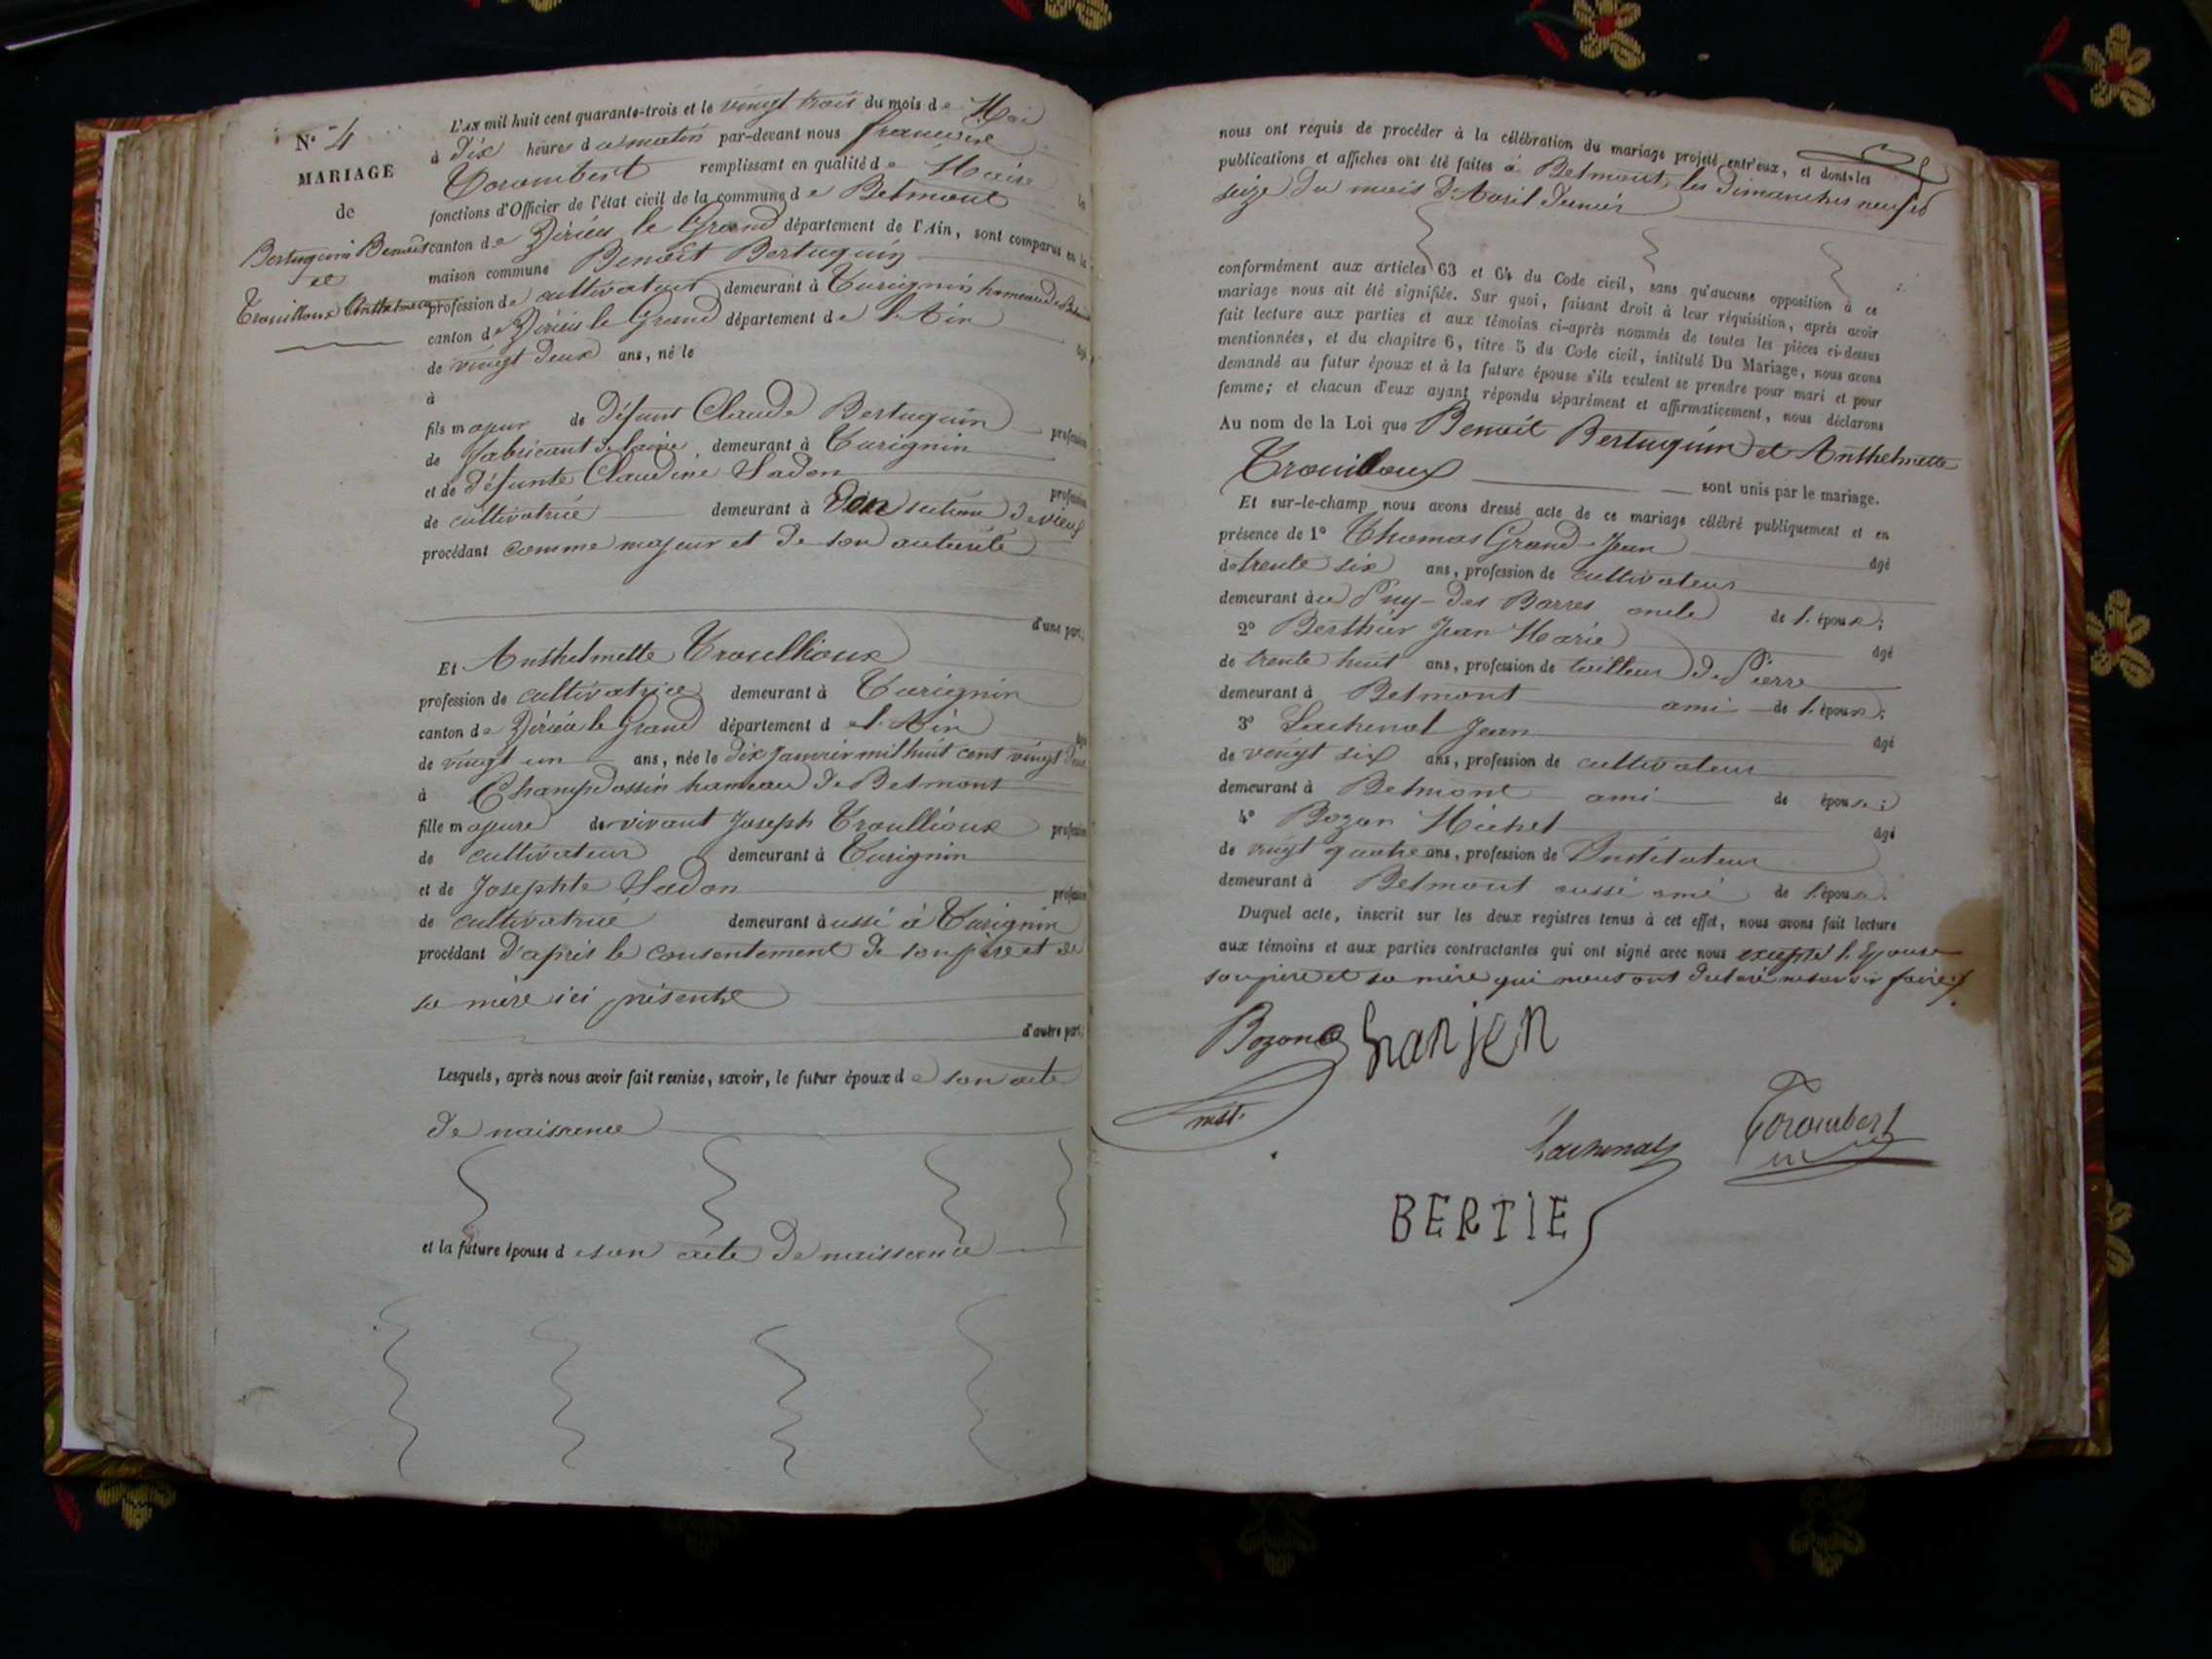 N° 4
MARIAGE
de
Bertuquin Benoit
et
Trouilloux Anthelmette
L'AN mil huit cent quarante-trois et le vingt trois du mois de Mai
à dix heures du matin par-devant nous
Corombert remplissant en qualité de Maire les
fonctions d'Officier de l'état civil de la commune de Belmont
canton de Virieu le Grand département de l'Ain, sont comparus en la
maison commune Benoit Bertuquin
profession de cultivateur demeurant à Vurignin hameau de Belmont
canton de Virieu le Grand département de l'Ain âgé
de vingt deux ans, né le
à
fils majeur de défunt Claude Bertuquin profession
de fabricant de laine demeurant à Vurignin
et de défunte Claudine Sadon profession
de cultivatrice demeurant à
procédant comme majeur et de son autorité
d'une part;
Et Anthelmette Troullioux
profession de cultivatrice demeurant à Vurignin
canton de Virieu le Grand département de l'Ain âgée
de vingt un ans, née le dix Janvier mil huit cent vingt deux
à Champdossin hameau de Belmont
fille majeure de vivant Joseph Troullioux profession
de cultivateur demeurant à Vurignin
et de Josephte Sadon profession
de cultivatrice demeurant aussi à Vurignin
procédant d'après le consentement de son père et de
sa mère ici présents
d'autre part;
Lesquels, après nous avoir fait remise, savoir, le futur époux de son acte
de naissance
et la future épouse de son acte de naissance
nous ont requis de procéder à la célébration du mariage projeté entr'eux, et dont les
publications et affiches ont été faites à Belmont les dimanches neuf et
seize du mois d'Avril dernier
conformément aux articles 63 et 64 du Code civil, sans qu'aucune opposition à ce
mariage nous ait été signifiée. Sur quoi, faisant droit à leur réquisition, après avoir
fait lecture aux parties et aux témoins ci-après nommés de toutes les pièces ci-dessus
mentionnées, et du chapitre 6, titre 5 du Code civil, intitulé Du Mariage, nous avons
demandé au futur époux et à la future épouse s'ils veulent se prendre pour mari et pour
femme; et chacun d'eux ayant répondu séparément et affirmativement, nous déclarons
Au nom de la Loi que Benoit Bertuquin et Anthelmette
Trouilloux sont unis par le mariage.
Et sur-le-champ nous avons dressé acte de ce mariage célébré publiquement et en
présence de 1° Thomas Grand-Jean âgé
de trente six ans, profession de cultivateur
demeurant au Puy-des Barres oncle de l'époux;
2° Berthier Jean Marie âgé
de trente huit ans, profession de tailleur de Pierre
demeurant à Belmont ami de l'époux;
3° Lachenal Jean âgé
de vingt six ans, profession de cultivateur
demeurant à Belmont ami de épouse;
4° Bozon Michel âgé
de vingt quatre ans, profession de Instituteur
demeurant à Belmont aussi ami de l'époux.
Duquel acte, inscrit sur les deux registres tenus à cet effet, nous avons fait lecture
aux témoins et aux parties contractantes qui ont signé avec nous excepté l'Epouse
son père et sa mère qui nous ont déclaré ne savoir faire
Bozon Granjen
inst.
Lachenal Corombert
BERTIE